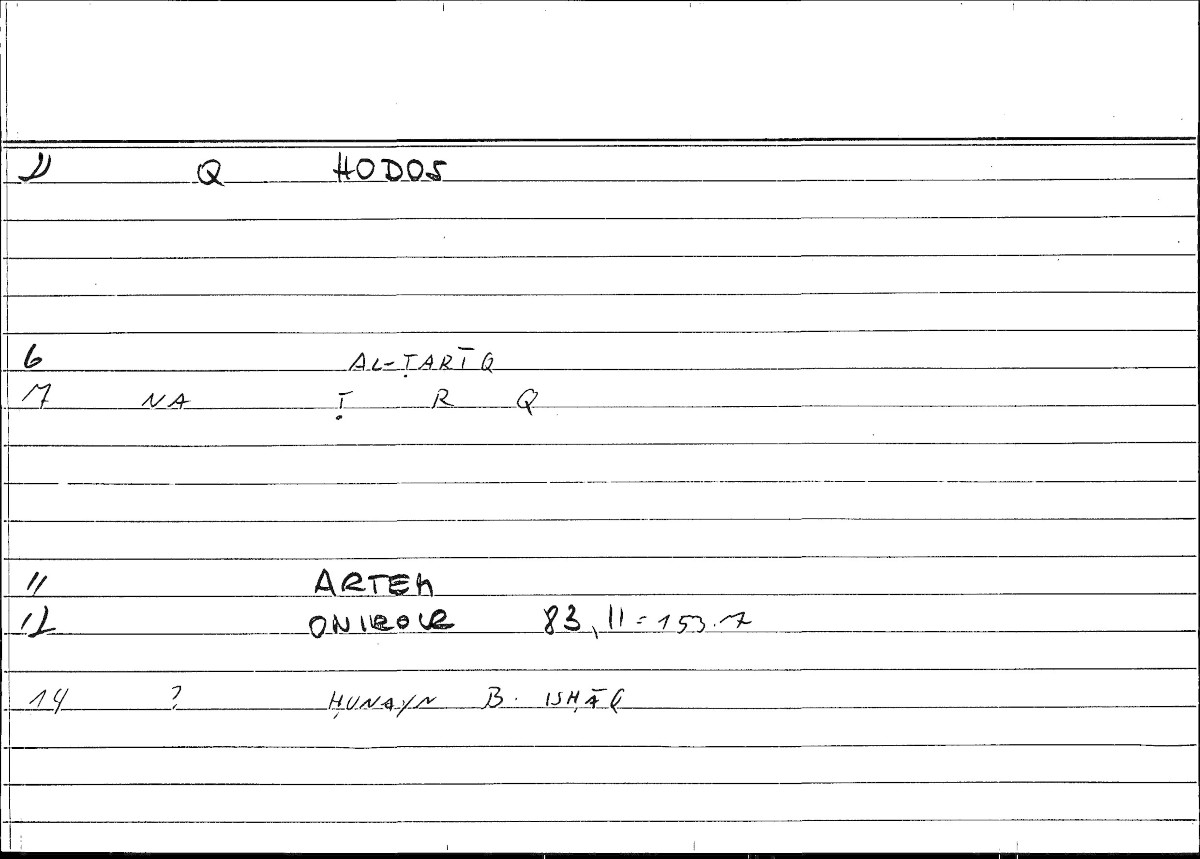 1) Q HODOS
6 AL-ṬARĪQ
7 NA Ṭ R Q
11 ARTEM
12 ONIROCR 83,11=153.7
14 ? ḤUNAYN B. ISḤĀQ